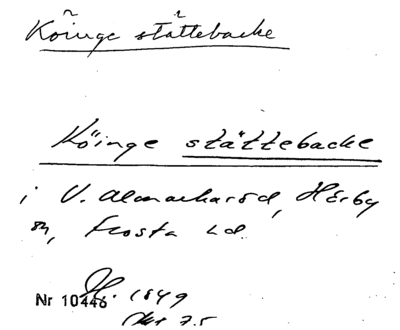 Köinge stättebacke
Köinge stättebacke
i V. Almarharöd, Hörby
sn, Frosta hd.
Nr 10446 1849